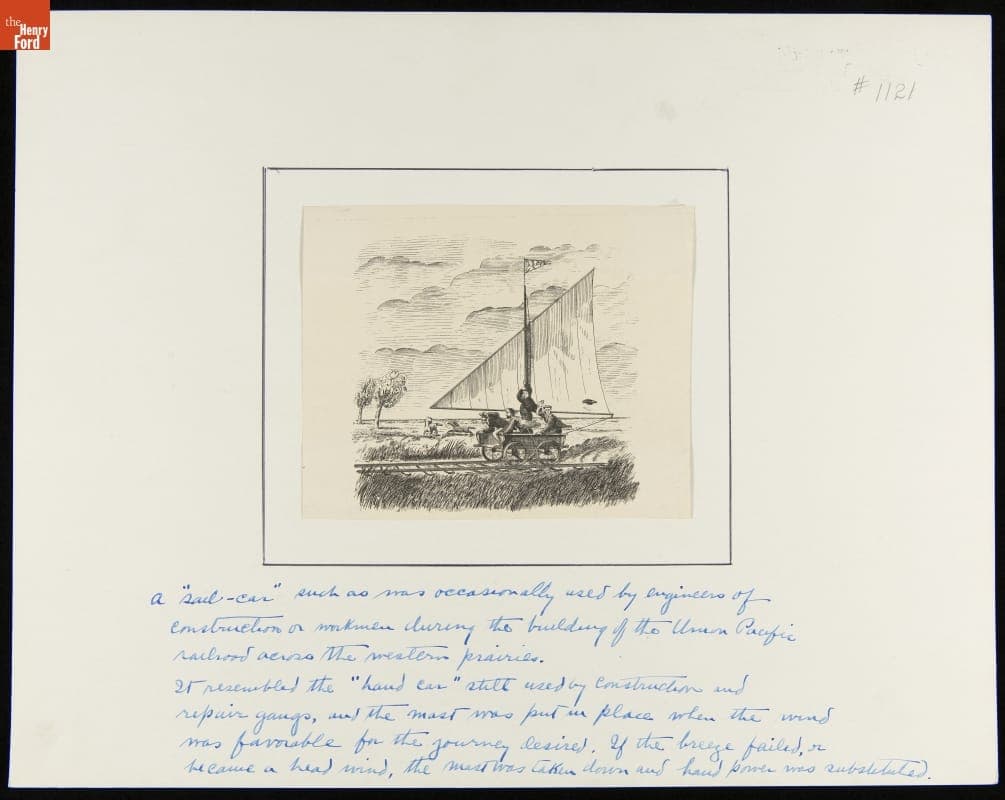 the
Henry
Ford
# 1121
A "sail-car" such as was occasionally used by engineers of
construction or workmen during the building of the Union Pacific
railroad across the western prairies.
It resembled the "hand car" still used by construction and
repair gangs, and the mast was put in place when the wind
was favorable for the journey desired. If the breeze failed, or
became a head wind, the mast was taken down and hand power was substituted.